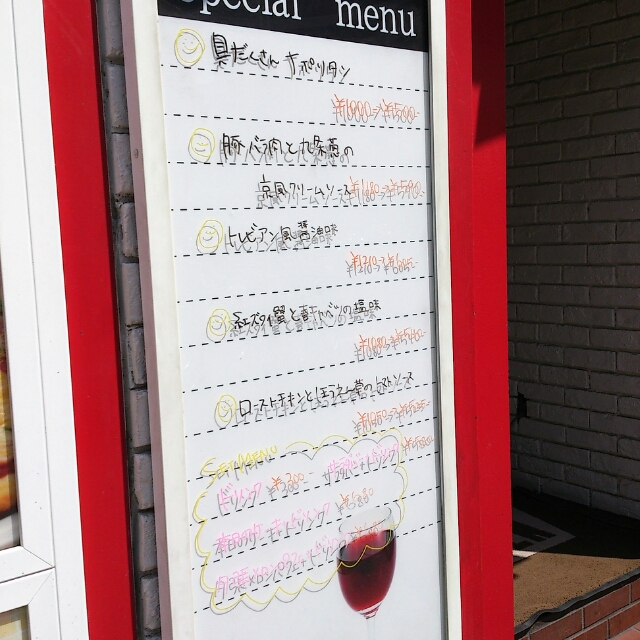 Special menu
具だくさんナポリタン
¥1000→¥500-
豚バラ肉と九条葱の
京風クリームソース ¥1180→¥590-
トレビアン風醤油味
¥1210→¥605-
紅ズワイ蟹と春キャベツの塩味
¥1080→¥540-
ローストチキンとほうれん草のトマトソース
¥1050→¥525-
SET MENU
ドリンク ¥300- サラダバー+ドリンク ¥580-
本日のケーキ+ドリンク ¥580
夕張メロンパフェ+ドリンク